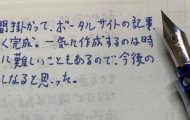 間掛かって、ポータルサイトの記事、
く完成。一気に作成するのは時
し難しいこともあるので、今後の
しなると思った。